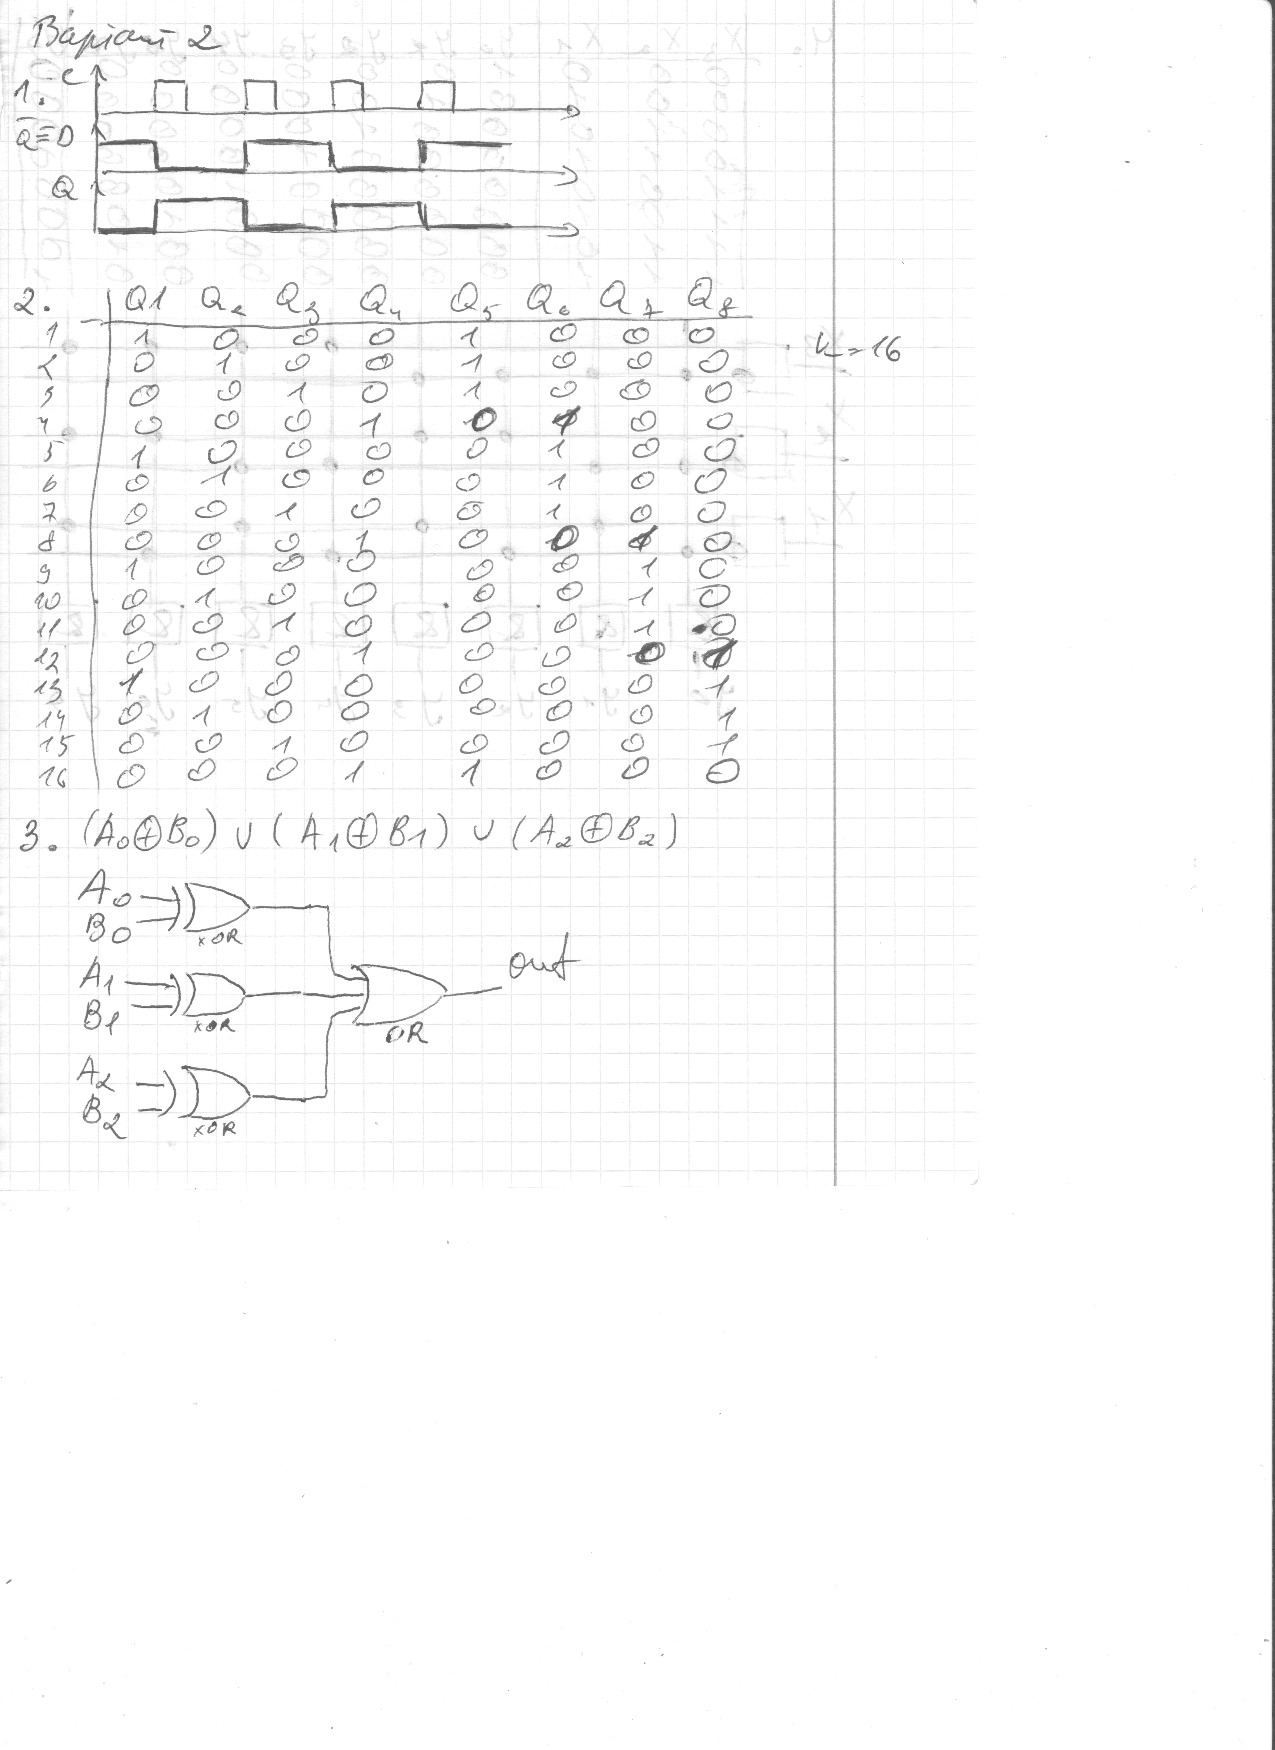 Варіант 2
1. C
Q̅=D
Q
2. Q1 Q2 Q3 Q4 Q5 Q6 Q7 Q8
1 1 0 0 0 1 0 0 0 k=16
2 0 1 0 0 1 0 0 0
3 0 0 1 0 1 0 0 0
4 0 0 0 1 0 1 0 0
5 1 0 0 0 0 1 0 0
6 0 1 0 0 0 1 0 0
7 0 0 1 0 0 1 0 0
8 0 0 0 1 0 0 1 0
9 1 0 0 0 0 0 1 0
10 0 1 0 0 0 0 1 0
11 0 0 1 0 0 0 1 0
12 0 0 0 1 0 0 0 1
13 1 0 0 0 0 0 0 1
14 0 1 0 0 0 0 0 1
15 0 0 1 0 0 0 0 1
16 0 0 0 1 1 0 0 0
3. (A0⊕B0) ∪ (A1⊕B1) ∪ (A2⊕B2)
A0
B0
XOR
A1
B1
XOR
out
OR
A2
B2
XOR